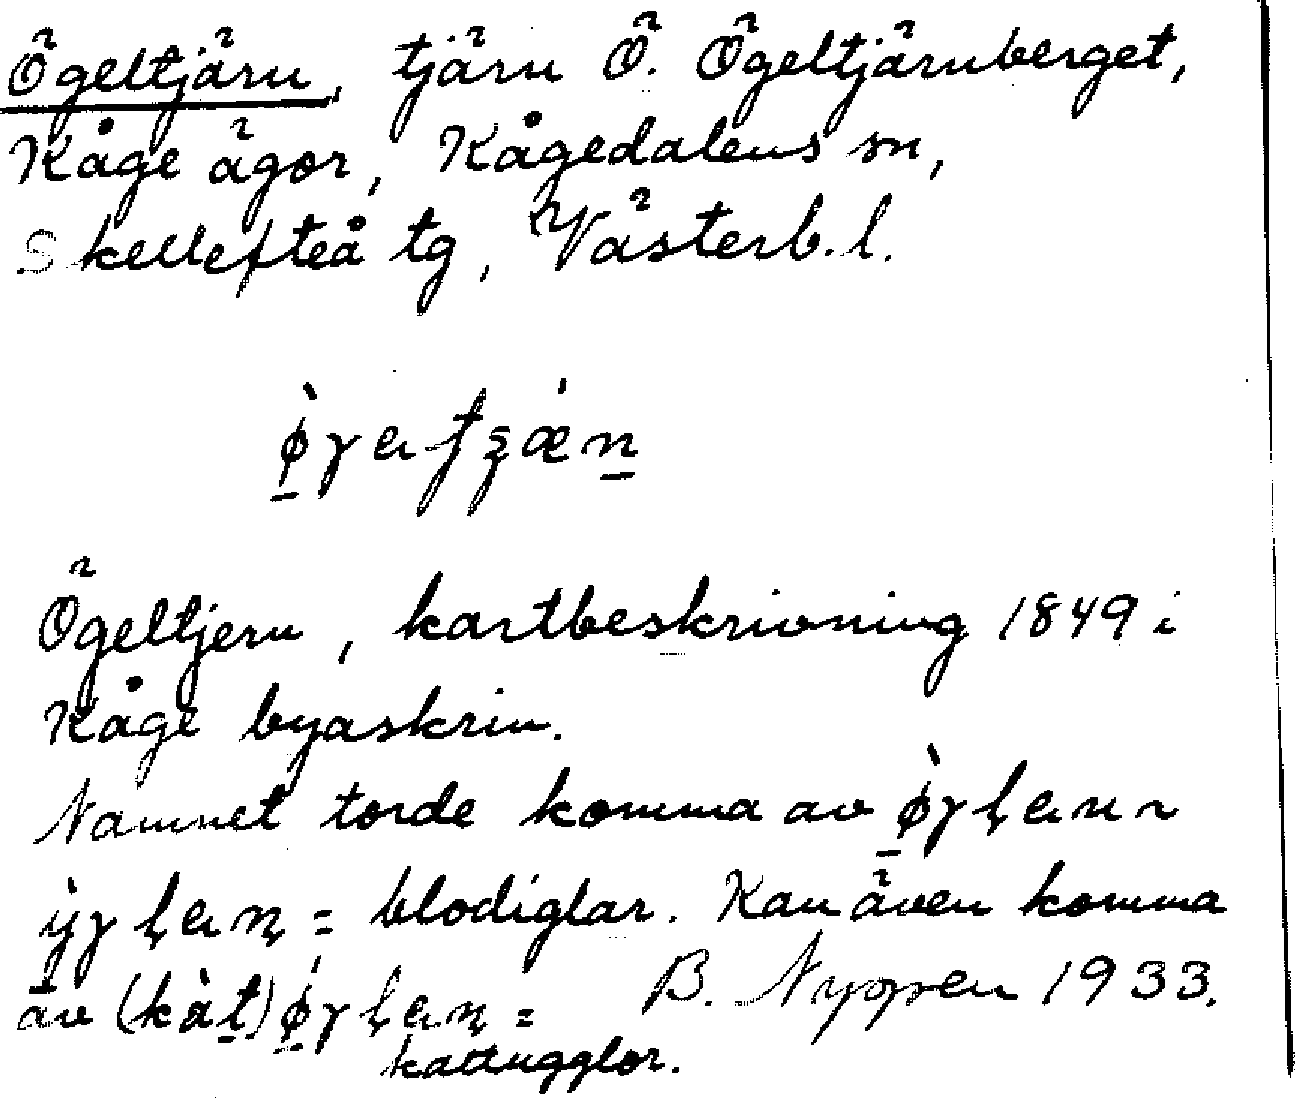 Ögeltjärn, tjärn Ö. Ögeltjärnberget,
Kåge ägor, Kågedalens sn,
Skellefteå tg, Västerb. l.
Ögeltjern, kartbeskrivning 1849 i
Kåge byaskrin.
Namnet torde komma av
= blodiglar. Kan även komma
av (kàt) =
kattugglor.
B. Nygren 1933.